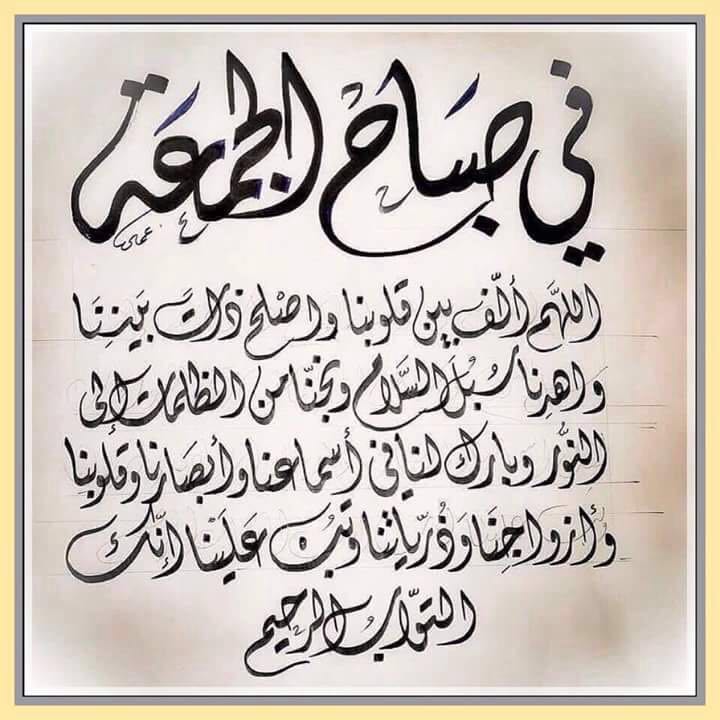 في صباح الجمعة
اللهم ألّف بين قلوبنا واصلح ذات بيننا
واهدنا سبل السّلام ونجنّا من الظلمات إلى
النّور وبارك لنا في أسماعنا وأبصارنا وقلوبنا
وأزواجنا وذُرّياتنا وتب علينا إنّك
التوّاب الرحيم